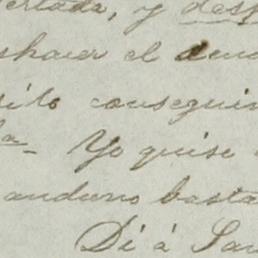 ertada, y desp
shacer el deno
sito conseguir
la- Yo quise
anduvo basta
Di á San